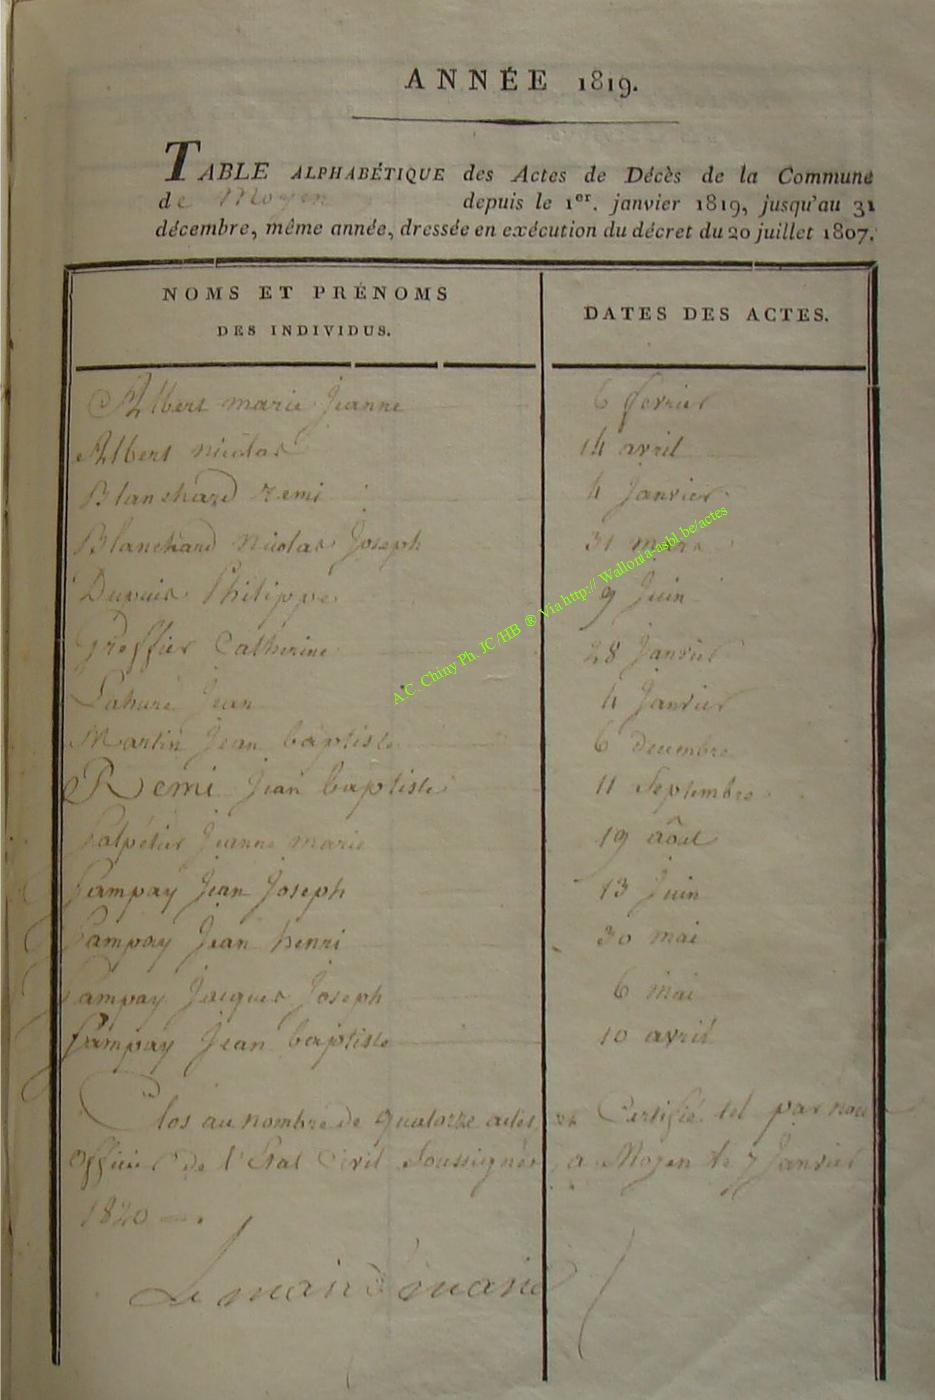 ANNÉE 1819.
TABLE ALPHABÉTIQUE des Actes de Décès de la Commune
de Moyen depuis le 1er. janvier 1819, jusqu'au 31
décembre, même année, dressée en exécution du décret du 20 juillet 1807.
NOMS ET PRÉNOMS
DES INDIVIDUS.
DATES DES ACTES.
Albert marie Jeanne 6 fevrier
Albert nicolas 14 avril
Blanchard remi 4 Janvier
Blanchard Nicolas Joseph 31 mars
Dupuis Philippe 9 Juin
Greffier Catherine 28 Janvier
Lahure Jean 4 Janvier
Martin Jean baptiste 6 decembre
Remi Jean baptiste 11 Septembre
Salpétier Jeanne marie 19 aôut
Pampay Jean Joseph 13 Juin
Pampay Jean henri 30 mai
Pampay Jacques Joseph 6 mai
Pampay Jean baptiste 10 avril
Clos au nombre de quatorze actes et Certifié tel par nous
officier de l'Etat Civil Soussigné a Moyen le 7 Janvier
1820
A.C. Chiny Ph. JC /HB ® Via http:// Wallonia-asbl.be/actes